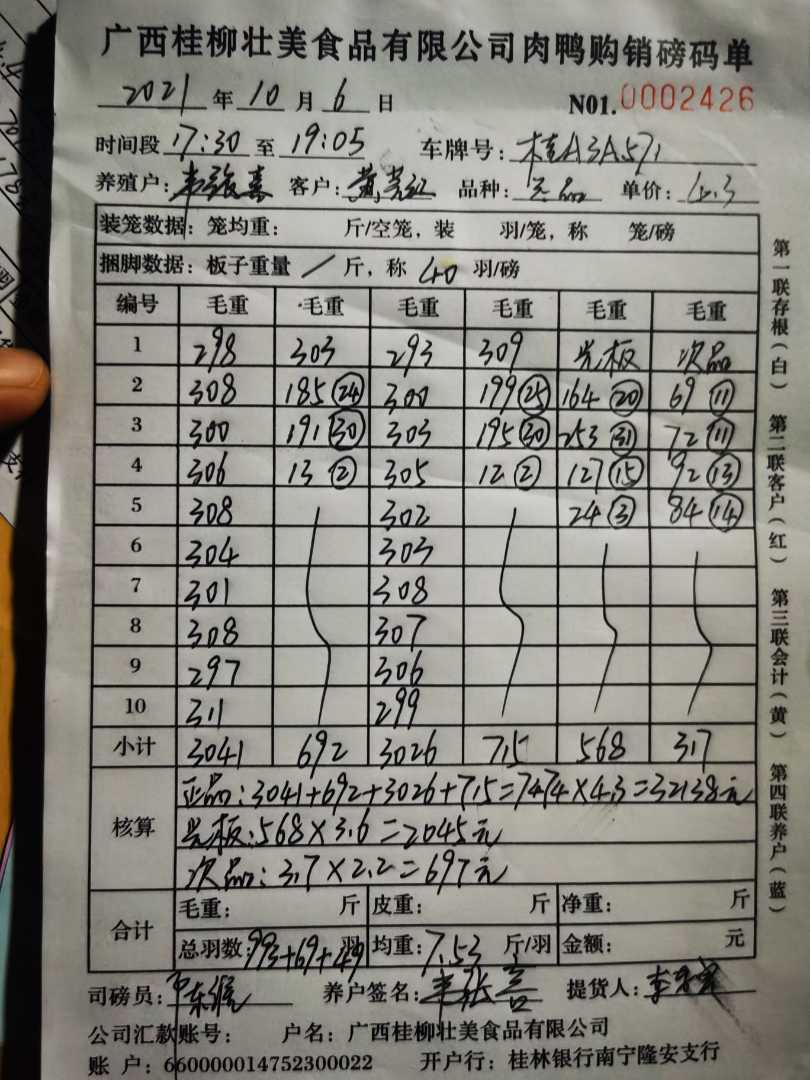 广西桂柳壮美食品有限公司肉鸭购销磅码单
2021年10月6日 N01.0002426
时间段17:30至19:05 车牌号:桂A3A571
养殖户: 客户:黄 品种:正品 单价:4.3
装笼数据:笼均重: 斤/空笼,装 羽/笼,称 笼/磅
捆脚数据:板子重量/斤,称40羽/磅
编号 毛重 毛重 毛重 毛重 毛重 毛重
1 298 303 293 309 光板 次品
2 308 185㉔ 300 199㉕ 164⑳ 69⑪
3 300 191㉚ 303 195㉚ 253㉛ 72⑪
4 306 13② 305 12② 127⑮ 92⑬
5 308 302 24③ 84⑭
6 304 303
7 301 308
8 308 307
9 297 306
10 311 299
小计 3041 692 3026 715 568 317
核算
正品:3041+692+3026+715=7474×4.3=32138元
光板:568×3.6=2045元
次品:317×2.2=697元
合计
毛重: 斤 皮重: 斤 净重: 斤
总羽数:993+69+49羽 均重:7.53斤/羽 金额: 元
司磅员: 养户签名: 提货人:李
公司汇款账号: 户名:广西桂柳壮美食品有限公司
账 户:660000014752300022 开户行:桂林银行南宁隆安支行
第一联存根(白) 第二联客户(红) 第三联会计(黄) 第四联养户(蓝)